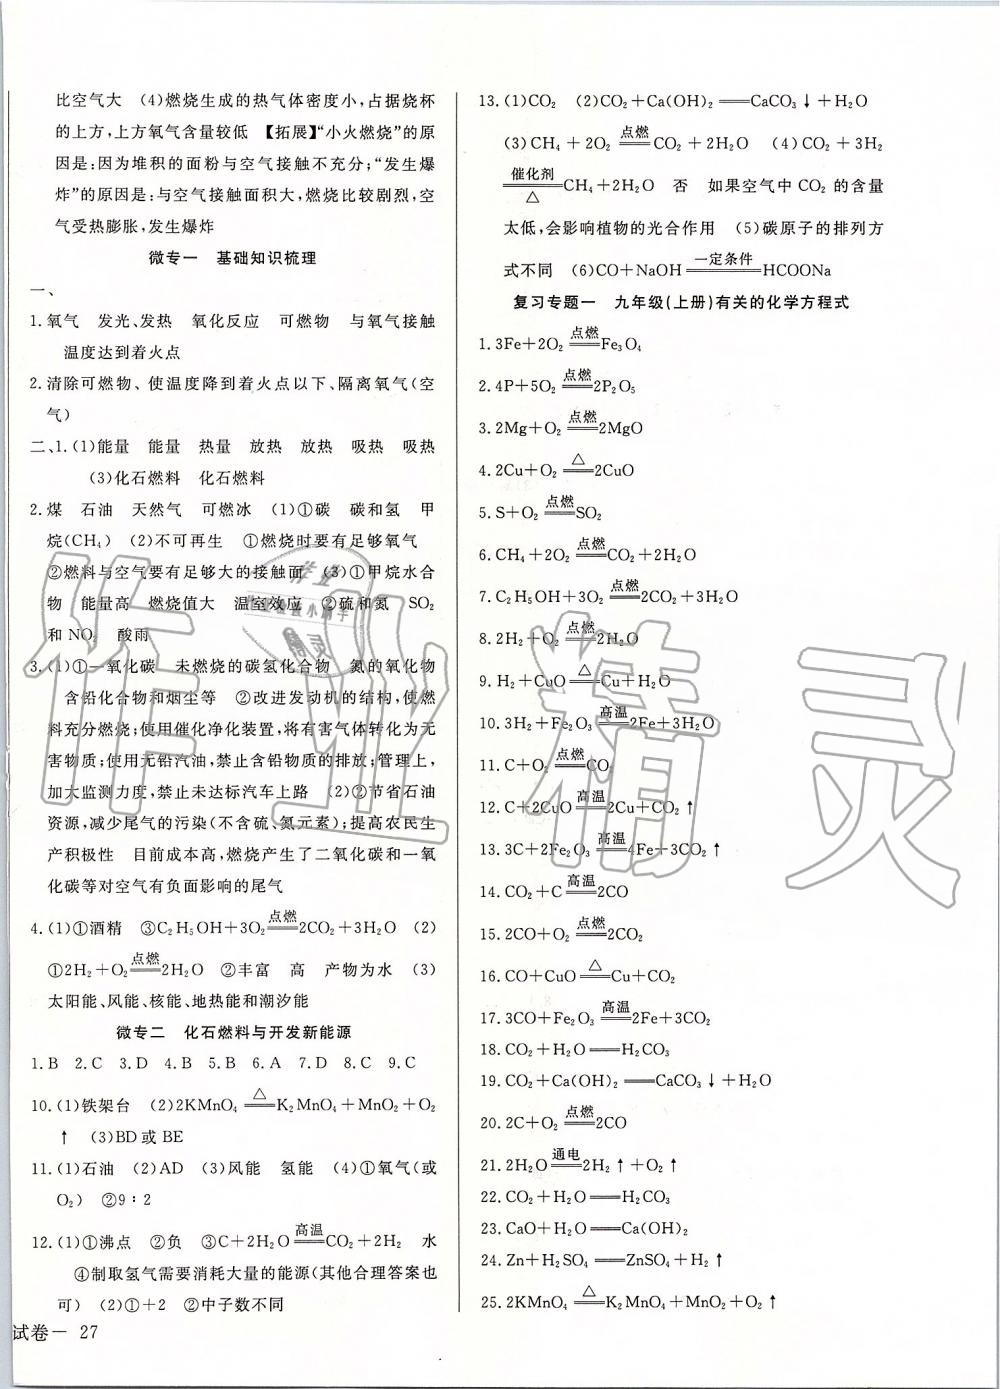 比空气大　(4)燃烧生成的热气体密度小,占据烧杯
的上方,上方氧气含量较低　【拓展】“小火燃烧”的原
因是:因为堆积的面粉与空气接触不充分;“发生爆
炸”的原因是:与空气接触面积大,燃烧比较剧烈,空
气受热膨胀,发生爆炸
微专一　基础知识梳理
一、
1.氧气　发光、发热　氧化反应　可燃物　与氧气接触
温度达到着火点
2.清除可燃物、使温度降到着火点以下、隔离氧气(空
气)
二、1.(1)能量　能量　热量　放热　放热　吸热　吸热
(3)化石燃料　化石燃料
2.煤　石油　天然气　可燃冰　(1)①碳　碳和氢　甲
烷(CH₄)　(2)不可再生　①燃烧时要有足够氧气
②燃料与空气要有足够大的接触面　(3)①甲烷水合
物　能量高　燃烧值大　温室效应　②硫和氮　SO₂
和NO₂　酸雨
3.(1)①一氧化碳　未燃烧的碳氢化合物　氮的氧化物
含铅化合物和烟尘等　②改进发动机的结构,使燃
料充分燃烧;使用催化净化装置,将有害气体转化为无
害物质;使用无铅汽油,禁止含铅物质的排放;管理上,
加大监测力度,禁止未达标汽车上路　(2)②节省石油
资源,减少尾气的污染(不含硫、氮元素);提高农民生
产积极性　目前成本高,燃烧产生了二氧化碳和一氧
化碳等对空气有负面影响的尾气
4.(1)①酒精　③C₂H₅OH+3O₂ 点燃══ 2CO₂+3H₂O　(2)
①2H₂+O₂ 点燃══ 2H₂O　②丰富　高　产物为水　(3)
太阳能、风能、核能、地热能和潮汐能
微专二　化石燃料与开发新能源
1.B　2.C　3.D　4.B　5.B　6.A　7.D　8.C　9.C
10.(1)铁架台　(2)2KMnO₄ △══ K₂MnO₄+MnO₂+O₂
↑　(3)BD或BE
11.(1)石油　(2)AD　(3)风能　氢能　(4)①氧气(或
O₂)　②9∶2
12.(1)①沸点　②负　③C+2H₂O 高温══ CO₂+2H₂　水
④制取氢气需要消耗大量的能源(其他合理答案也
可)　(2)①+2　②中子数不同
试卷－ 27
13.(1)CO₂　(2)CO₂+Ca(OH)₂ ══ CaCO₃↓+H₂O
(3)CH₄+2O₂ 点燃══ CO₂+2H₂O　(4)CO₂+3H₂
催化剂══△ CH₄+2H₂O　否　如果空气中CO₂的含量
太低,会影响植物的光合作用　(5)碳原子的排列方
式不同　(6)CO+NaOH 一定条件══ HCOONa
复习专题一　九年级(上册)有关的化学方程式
1.3Fe+2O₂ 点燃══ Fe₃O₄
2.4P+5O₂ 点燃══ 2P₂O₅
3.2Mg+O₂ 点燃══ 2MgO
4.2Cu+O₂ △══ 2CuO
5.S+O₂ 点燃══ SO₂
6.CH₄+2O₂ 点燃══ CO₂+2H₂O
7.C₂H₅OH+3O₂ 点燃══ 2CO₂+3H₂O
8.2H₂+O₂ 点燃══ 2H₂O
9.H₂+CuO △══ Cu+H₂O
10.3H₂+Fe₂O₃ 高温══ 2Fe+3H₂O
11.C+O₂ 点燃══ CO₂
12.C+2CuO 高温══ 2Cu+CO₂↑
13.3C+2Fe₂O₃ 高温══ 4Fe+3CO₂↑
14.CO₂+C 高温══ 2CO
15.2CO+O₂ 点燃══ 2CO₂
16.CO+CuO △══ Cu+CO₂
17.3CO+Fe₂O₃ 高温══ 2Fe+3CO₂
18.CO₂+H₂O ══ H₂CO₃
19.CO₂+Ca(OH)₂ ══ CaCO₃↓+H₂O
20.2C+O₂ 点燃══ 2CO
21.2H₂O 通电══ 2H₂↑+O₂↑
22.CO₂+H₂O ══ H₂CO₃
23.CaO+H₂O ══ Ca(OH)₂
24.Zn+H₂SO₄ ══ ZnSO₄+H₂↑
25.2KMnO₄ △══ K₂MnO₄+MnO₂+O₂↑
作业精灵